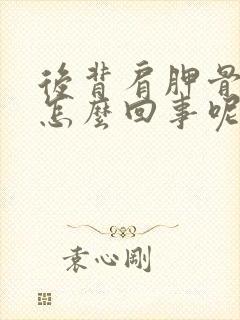 後背肩胛骨
怎麼回事呢
袁心剛